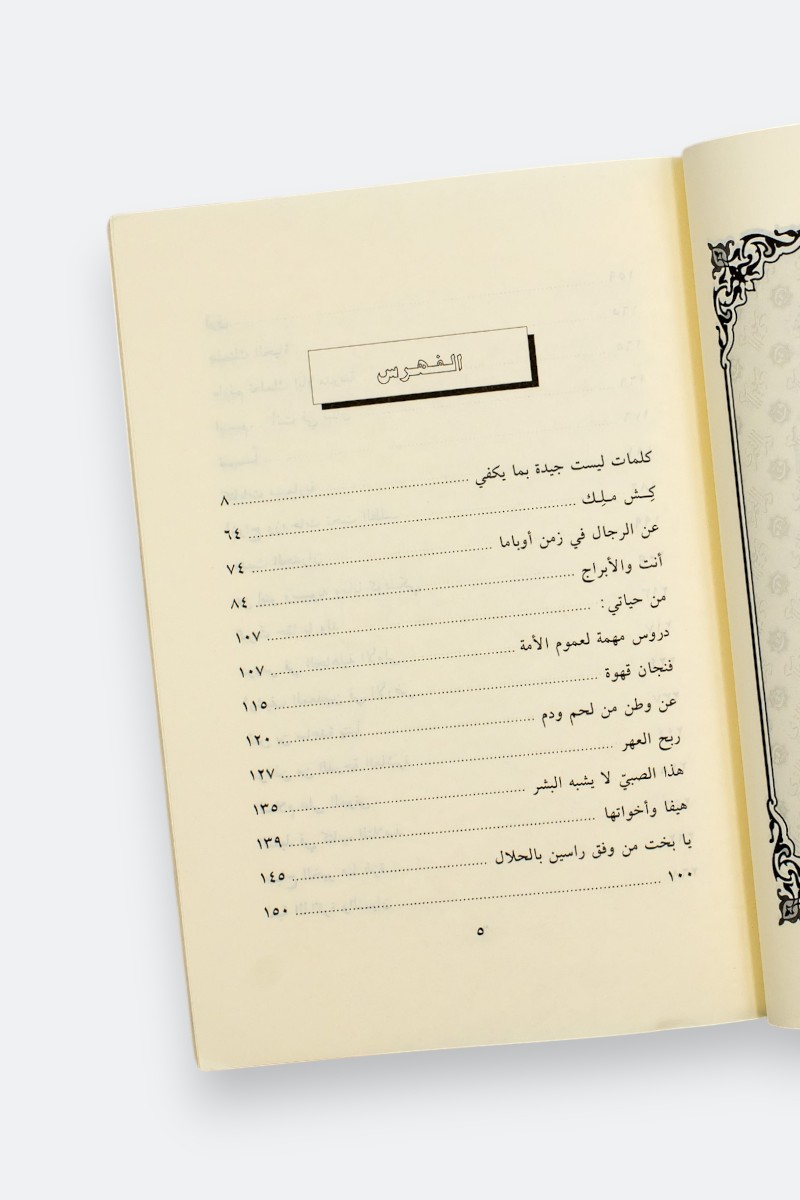 الفهرس
كلمات ليست جيدة بما يكفي ........ ٨
كِـش مـلِـك ........ ٦٤
عن الرجال في زمن أوباما ........ ٧٤
أنت والأبراج ........ ٨٤
من حياتي: ........ ١٠٧
دروس مهمة لعموم الأمة ........ ١٠٧
فنجان قهوة ........ ١١٥
عن وطن من لحم ودم ........ ١٢٠
ربح العهر ........ ١٢٧
هذا الصبيّ لا يشبه البشر ........ ١٣٥
هيفا وأخواتها ........ ١٣٩
يا بخت من وفق راسين بالحلال ........ ١٤٥
١٠٠ ........ ١٥٠
٥